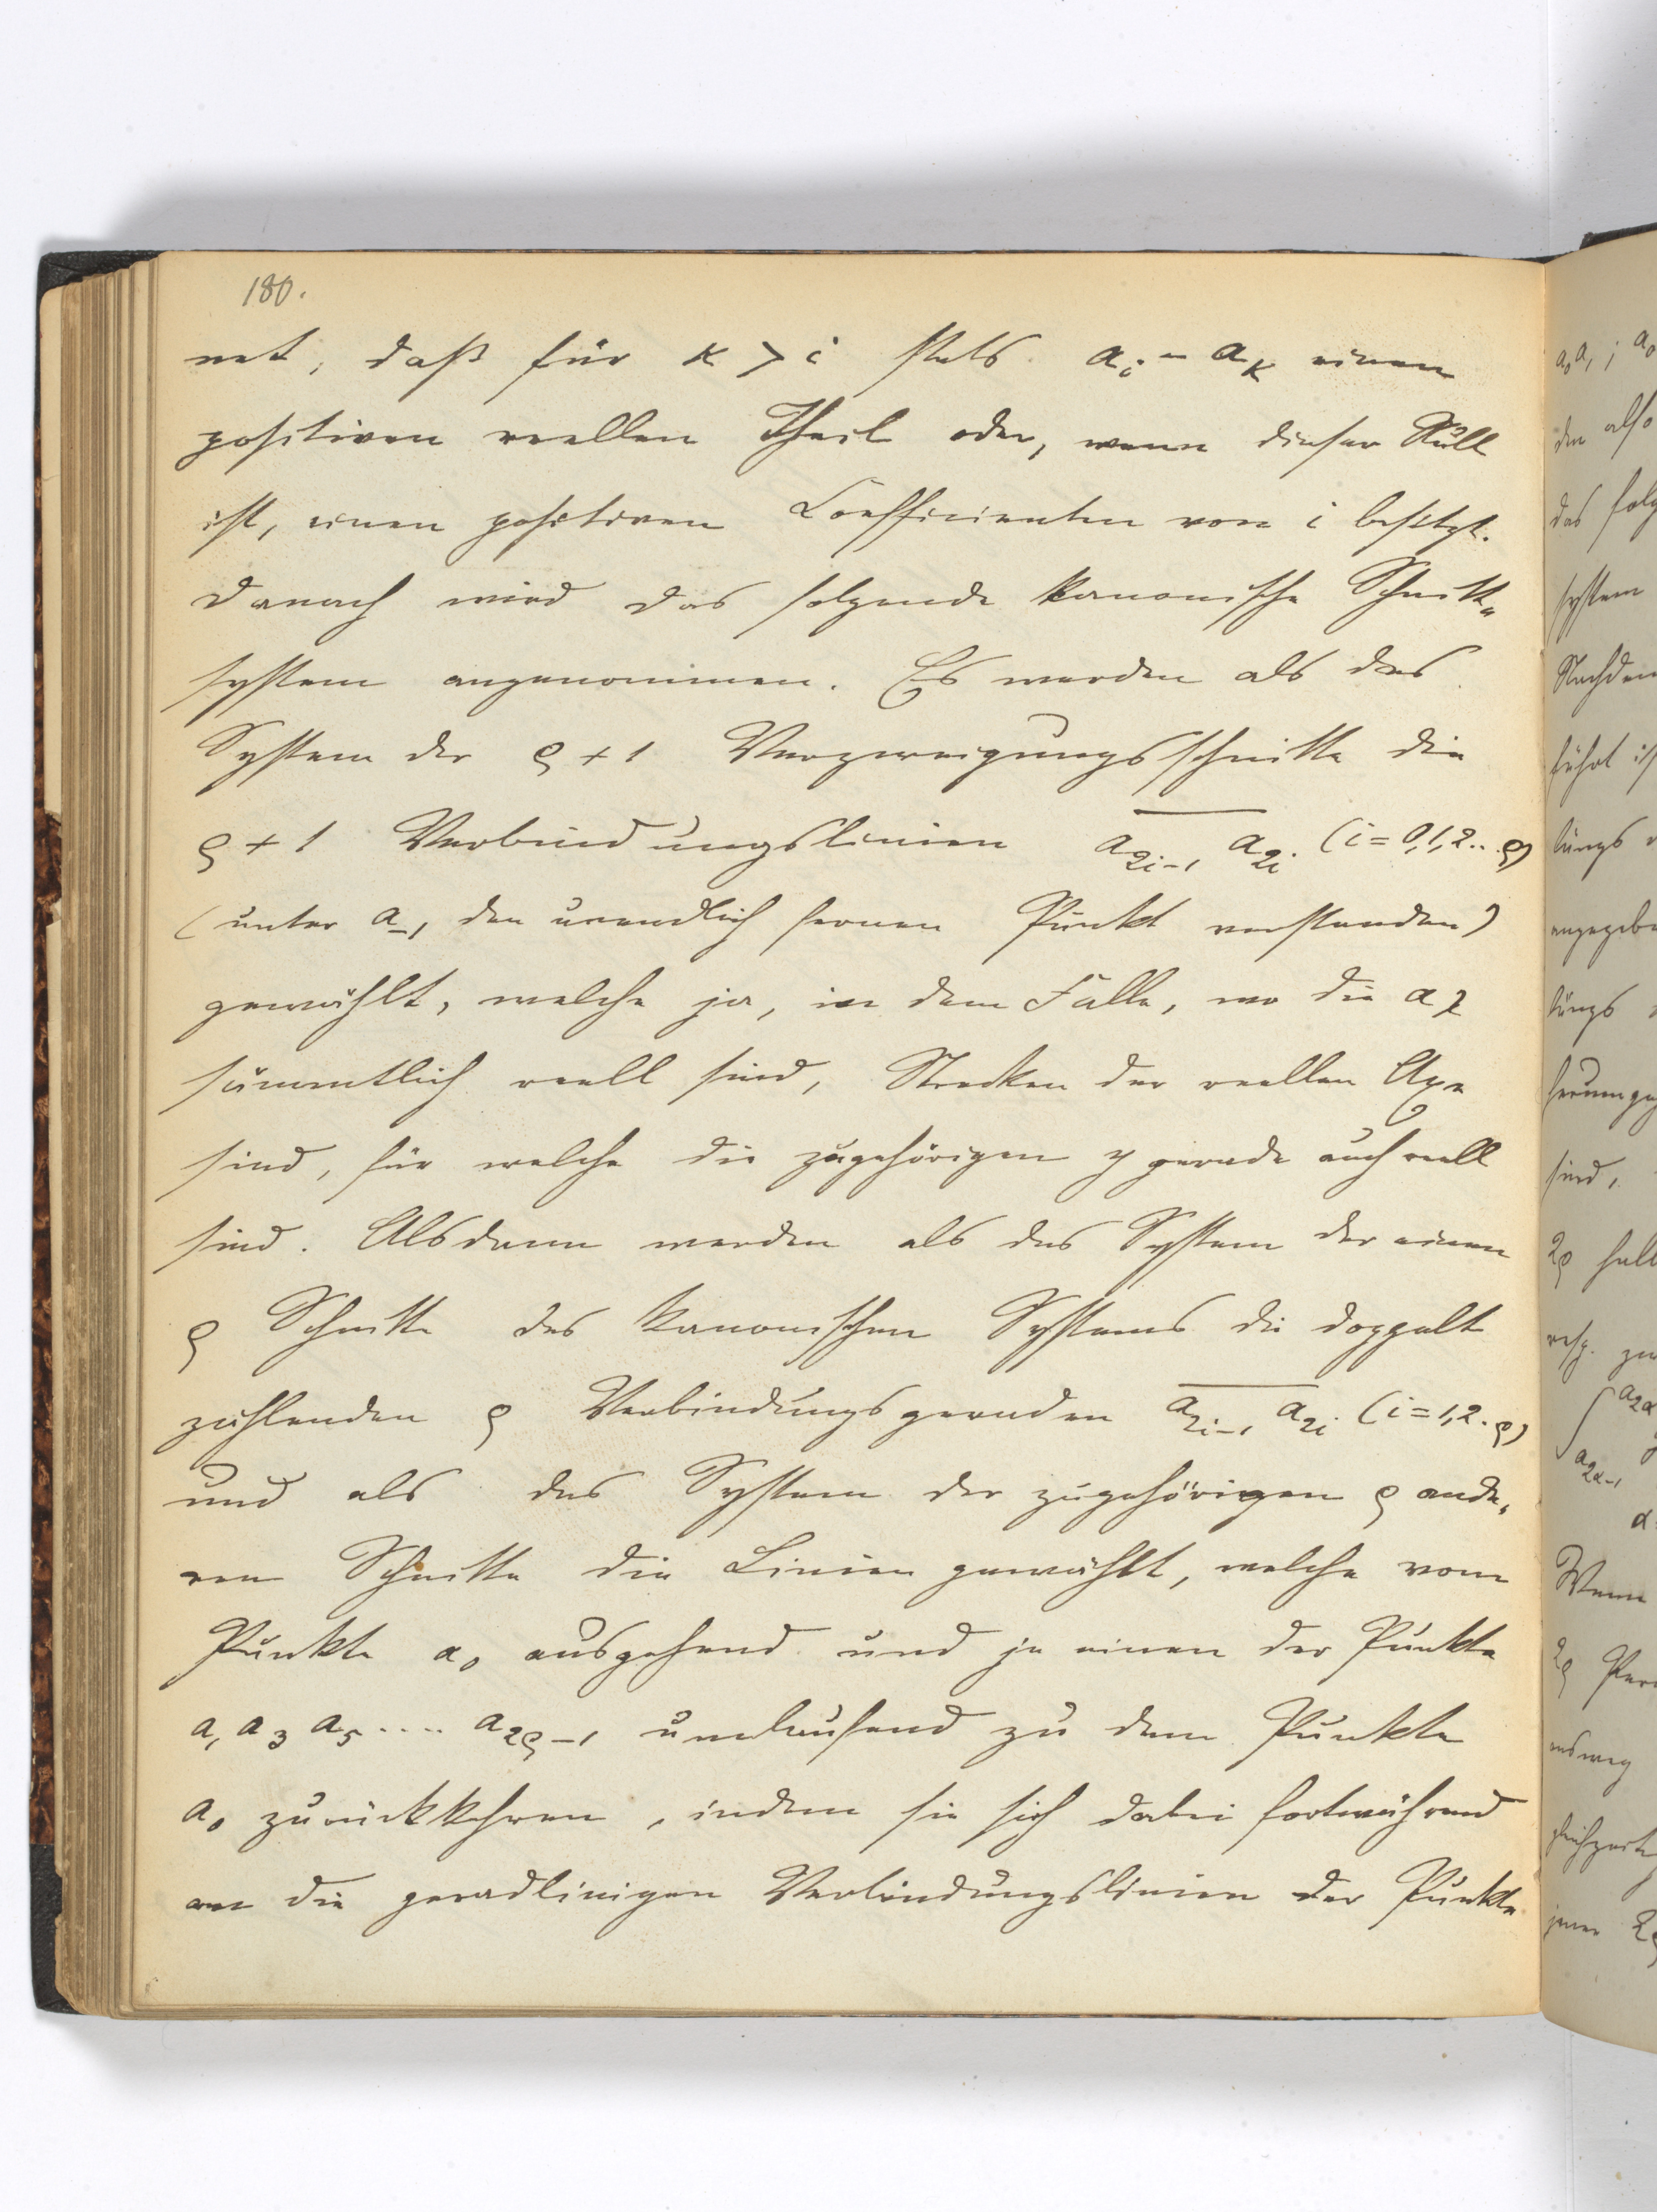 180.
net, daß für κ > i stets a_i - a_κ einen
positiven reellen Theil oder, wenn dieser Null
ist, einen positiven Coefficienten von i besitzt.
Danach wird das folgende kanonische Schnitt„
system angenommen. Es werden als das
System der ϱ + 1 Verzweigungsschnitte die
ϱ + 1 Verbindungslinien a_{2i-1} a_{2i} (i = 0,1,2..ϱ)
(unter a_{-1} den unendlich fernen Punkt verstanden)
gewählt, welche ja, in dem Falle, wo die a_λ
sämmtlich reell sind, Strecken der reellen Axe
sind, für welche die zugehörigen y gerade auch reell
sind. Alsdann werden als das System der einen
ϱ Schnitte des kanonischen Systems die doppelt
zählenden ϱ Verbindungsgeraden a_{2i-1} a_{2i} (i = 1,2.ϱ)
und als das System der zugehörigen ϱ ande„
ren Schnitte die Linien gewählt, welche vom
Punkte a_0 ausgehend und je einen der Punkte
a_1 a_3 a_5 .... a_{2ϱ-1} umlaufend zu dem Punkte
a_0 zurückkehren, indem sie sich dabei fortwährend
an die geradlinigen Verbindungslinien der Punkte
a_0 a_1 ; a_0
den also
das folg
system
Nachdem
führt is
tungs
angegebe
tungs
herumge
sind,
2ϱ
resp. zu
∫ a_{2α}
a_{2α-1}
α
Wenn
2ϱ Per
jener 2ϱ